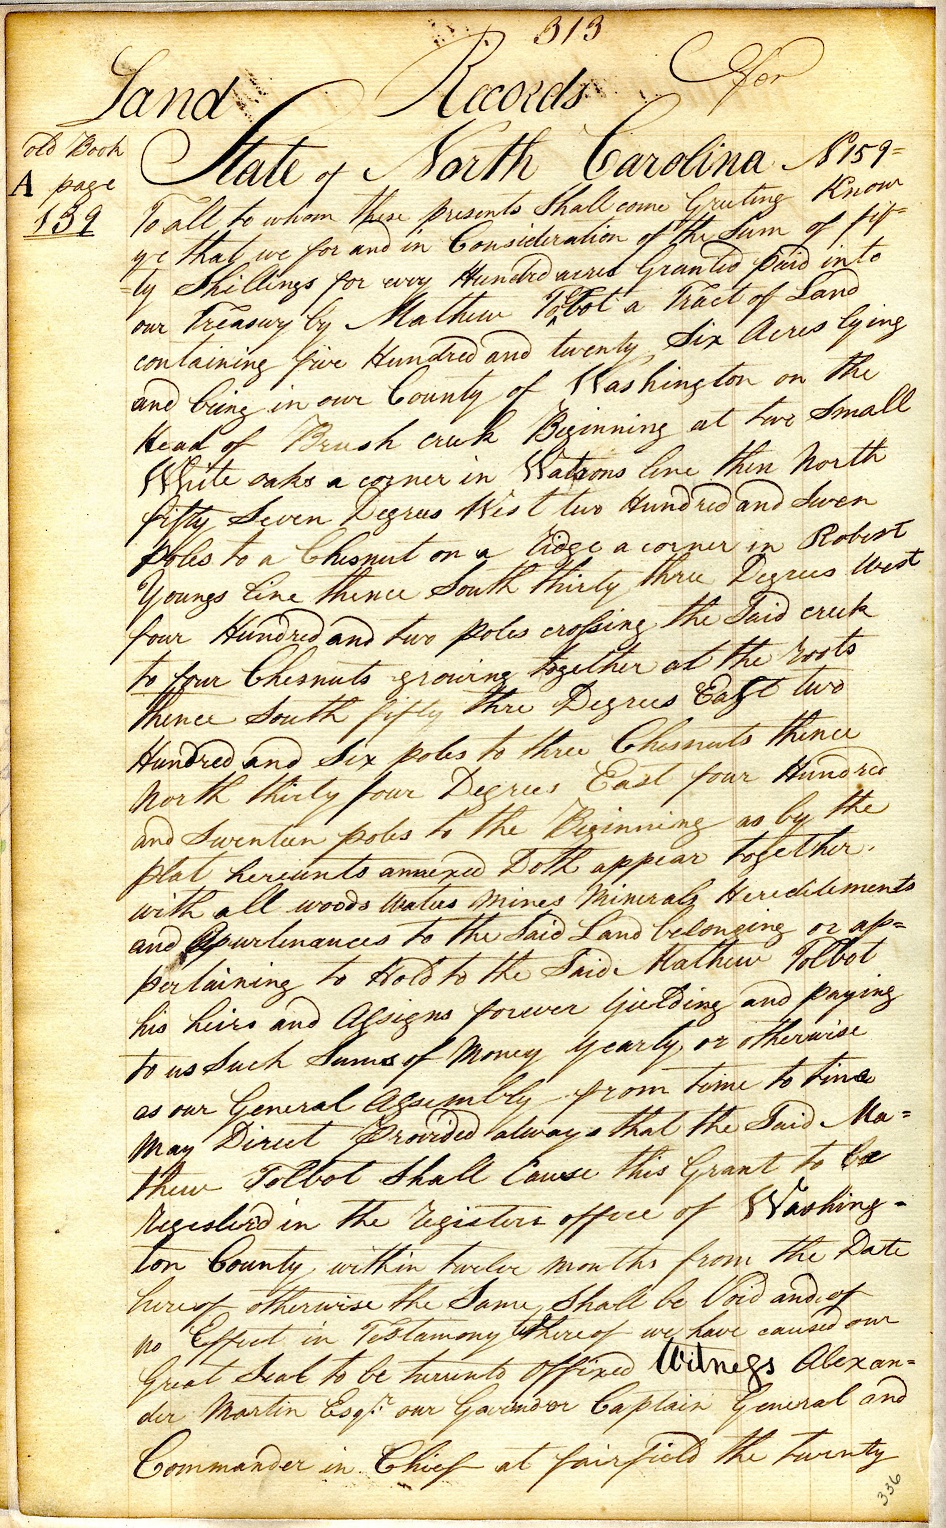 313
Land Records for
old Book
A page
139
State of North Carolina No 159=
To all to whom these presents Shall come Greeting Know
ye that we for and in Consideration of the Sum of fif=
=ty Shillings for every Hundred acres Granted paid into
our Treasury by Mathew Tolbot a Tract of Land
containing five Hundred and twenty Six Acres lying
and being in our County of Washington on the
Head of Brush creek Beginning at two Small
White oaks a corner in Watsons line then North
fifty Seven Degrees West two Hundred and Seven
poles to a Chesnut on a Ridge a corner in Robert
Youngs Line thence South thirty three Degrees West
four Hundred and two poles crossing the Said creek
to four Chesnuts growing together at the roots
thence South fifty thre Degrees East two
Hundred and Six poles to three Chesnuts thence
North thirty four Degrees East four Hundred
and Seventeen poles to the Beginning as by the
plat hereunto annexed Doth appear together
with all woods waters Mines Minerals Hereditements
and Apurtinances to the Said Land belonging or ap=
pertaining to Hold to the Said Mathew Tolbot
his heirs and Assigns forever Yielding and paying
to us Such Sums of Money Yearly or otherwise
as our General Assembly from time to time
May Direct Provided always that the Said Ma=
thew Tolbot Shall Cause this Grant to be
registerd in the registers office of Washing=
ton County within twelve months from the Date
hereof otherwise the Same Shall be Void and of
no Effect in Testamony Whereof we have caused our
Great Seal to be hereunto Affixed Witness Alexan=
der Martin Esqr. our Governor Captain General and
Commander in Chief at fairfield the twenty
336